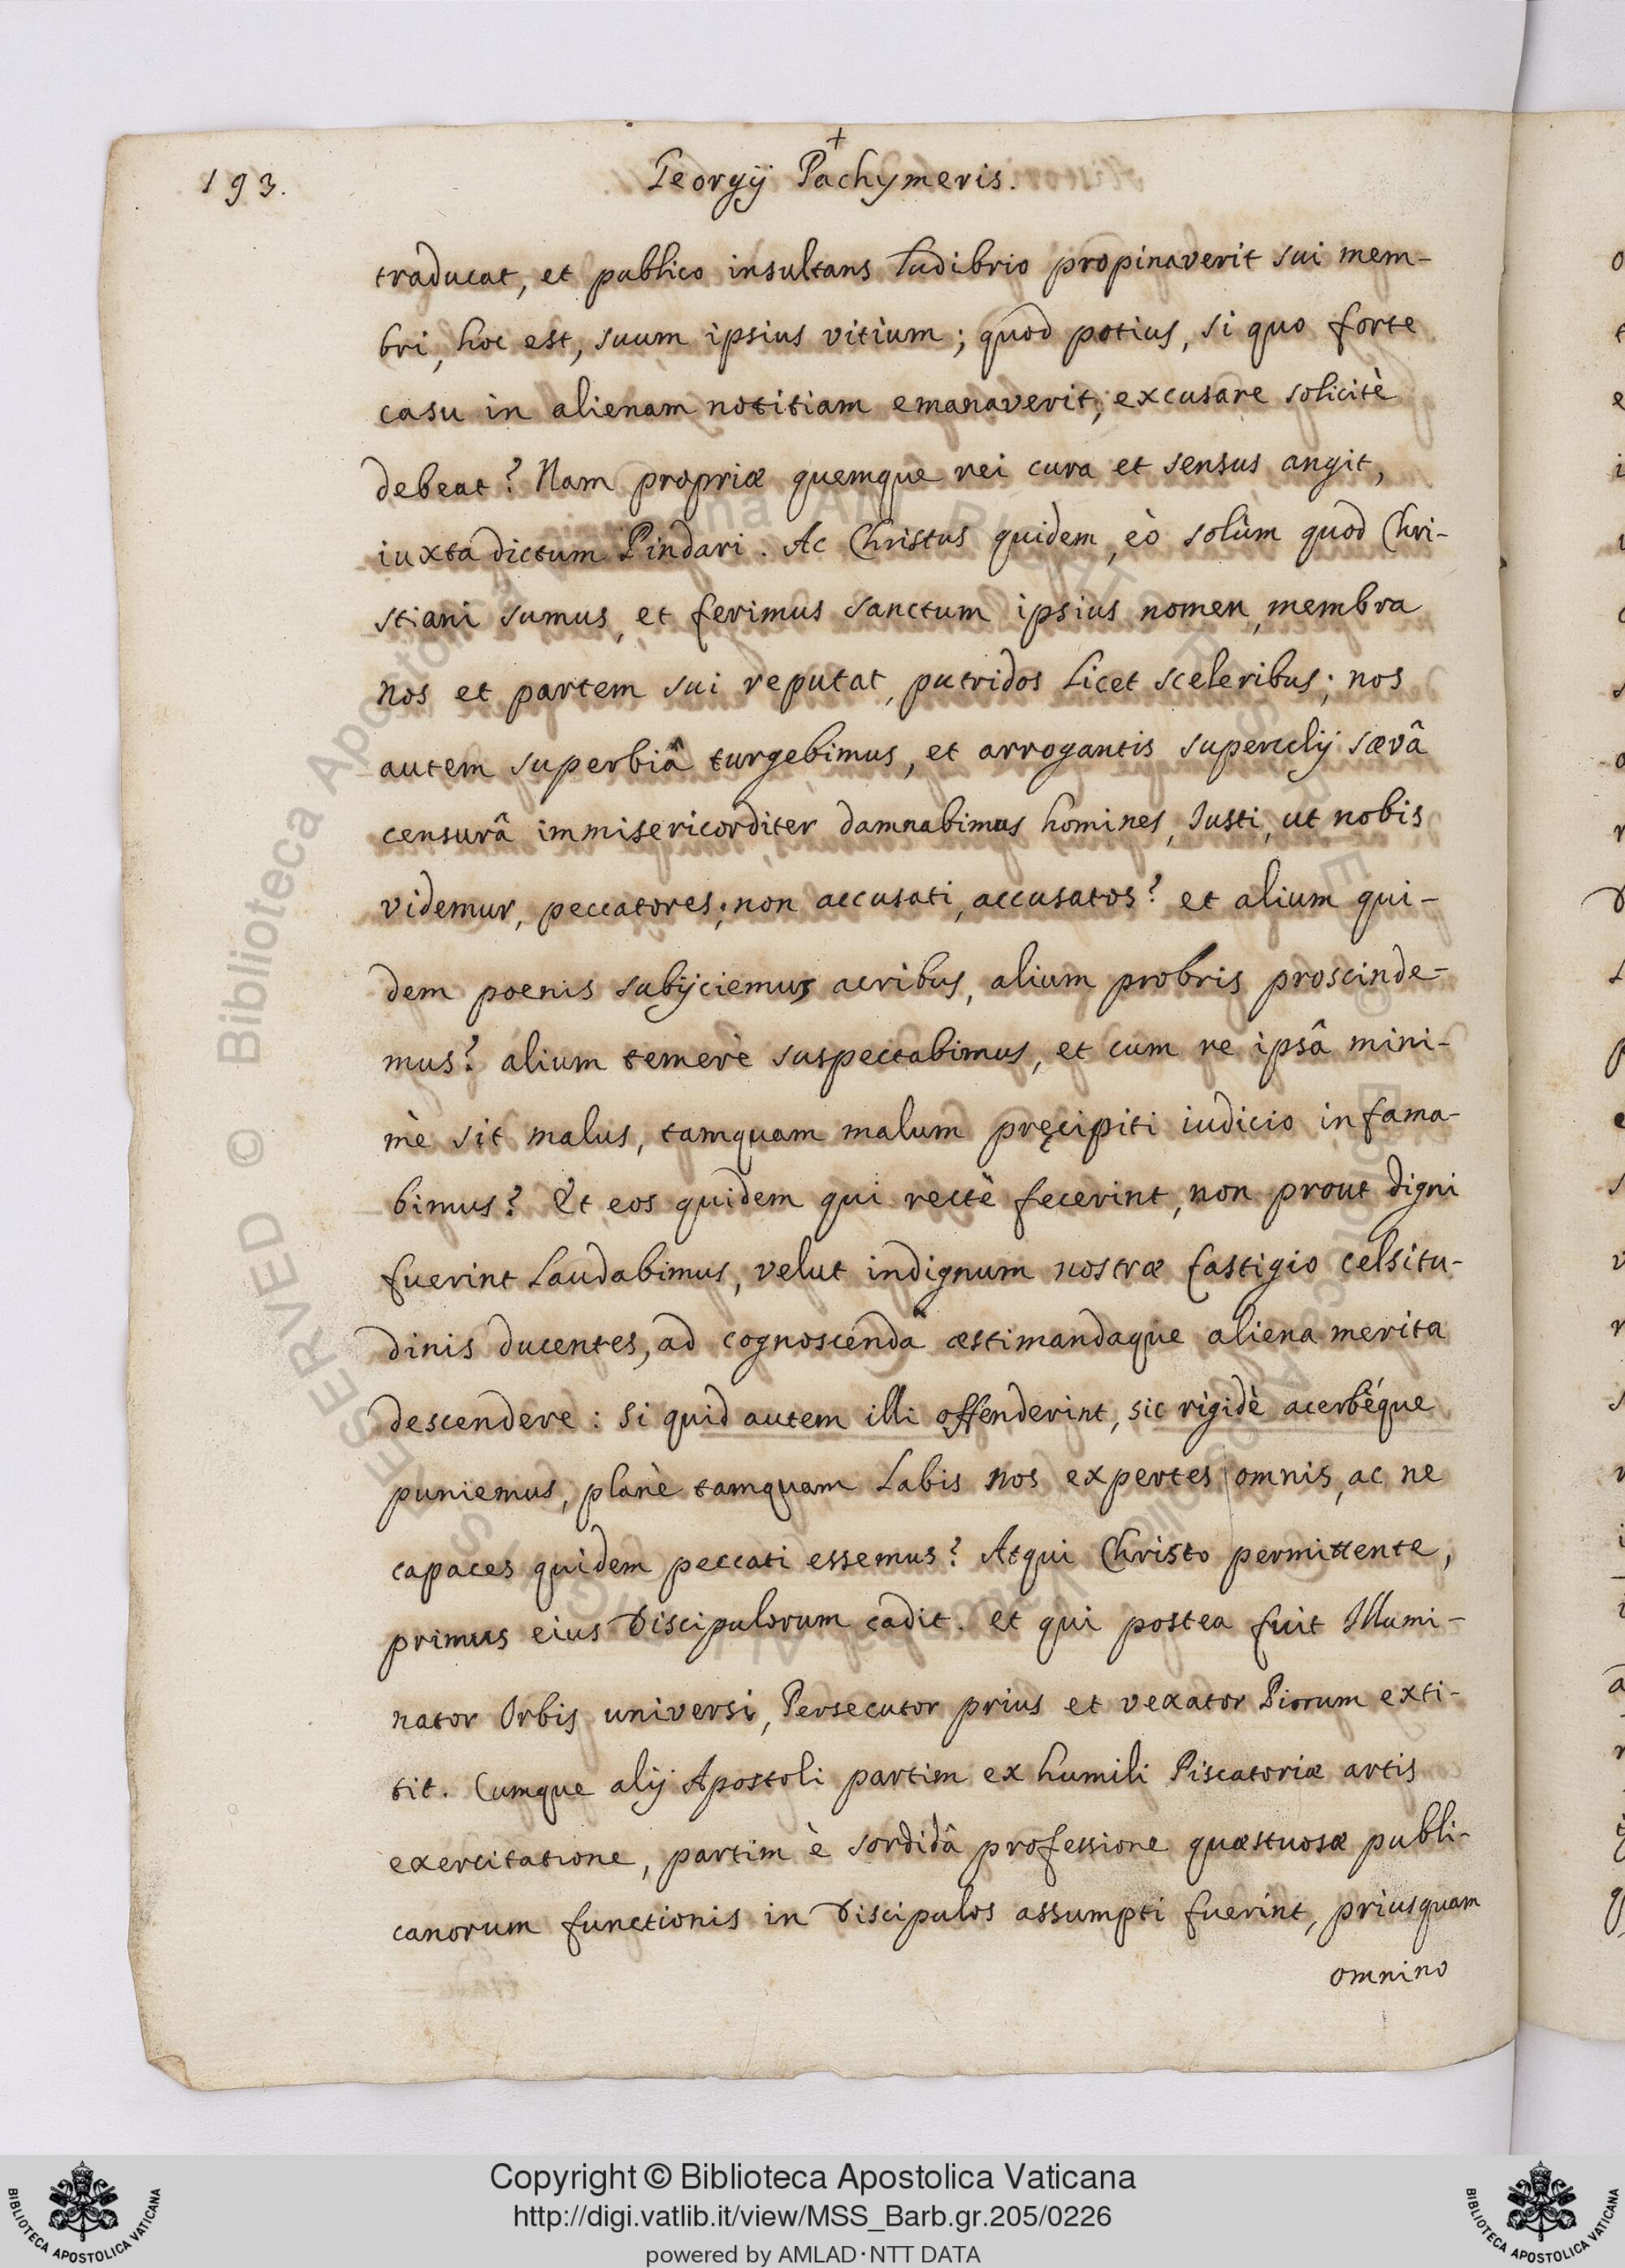 +
193.
Georgij Pachymeris.
traducat, et publico insultans ludibrio propinaverit sui mem-
bri, hoc est, suum ipsius vitium; quod potius, si quo forte
casu in alienam notitiam emanaverit, excusare solicitè
debeat? Nam propriæ quemque rei cura et sensus angit,
iuxta dictum Pindari. Ac Christus quidem, eò solùm quod Chri-
stiani sumus, et ferimus sanctum ipsius nomen, membra
nos et partem sui reputat, putridos licet sceleribus; nos
autem superbiâ turgebimus, et arrogantis supercilij sævâ
censurâ immisericorditer damnabimus homines, Iusti, ut nobis
videmur, peccatores; non accusati, accusatos? et alium qui-
dem poenis subijciemus acribus, alium probris proscinde-
mus? alium temerè suspectabimus, et cum re ipsâ mini-
mè sit malus, tamquam malum pręcipiti iudicio infama-
bimus? Et eos quidem qui rectè fecerint, non prout digni
fuerint laudabimus, velut indignum nostræ fastigio celsitu-
dinis ducentes, ad cognoscenda æstimandaque aliena merita
descendere: si quid autem illi offenderint, sic rigidè acerbéque
puniemus, planè tamquam labis nos expertes omnis, ac ne
capaces quidem peccati essemus? Atqui Christo permittente,
primus eius Discipulorum cadit. et qui postea fuit Illumi-
nator Orbis universi, Persecutor prius et vexator Piorum exti-
tit. Cumque alij Apostoli partim ex humili Piscatoriæ artis
exercitatione, partim è sordidâ professione quæstuosæ publi-
canorum functionis in Discipulos assumpti fuerint, priusquam
omnino
Copyright © Biblioteca Apostolica Vaticana
http://digi.vatlib.it/view/MSS_Barb.gr.205/0226
powered by AMLAD·NTT DATA
BIBLIOTECA APOSTOLICA VATICANA
BIBLIOTECA APOSTOLICA VATICANA